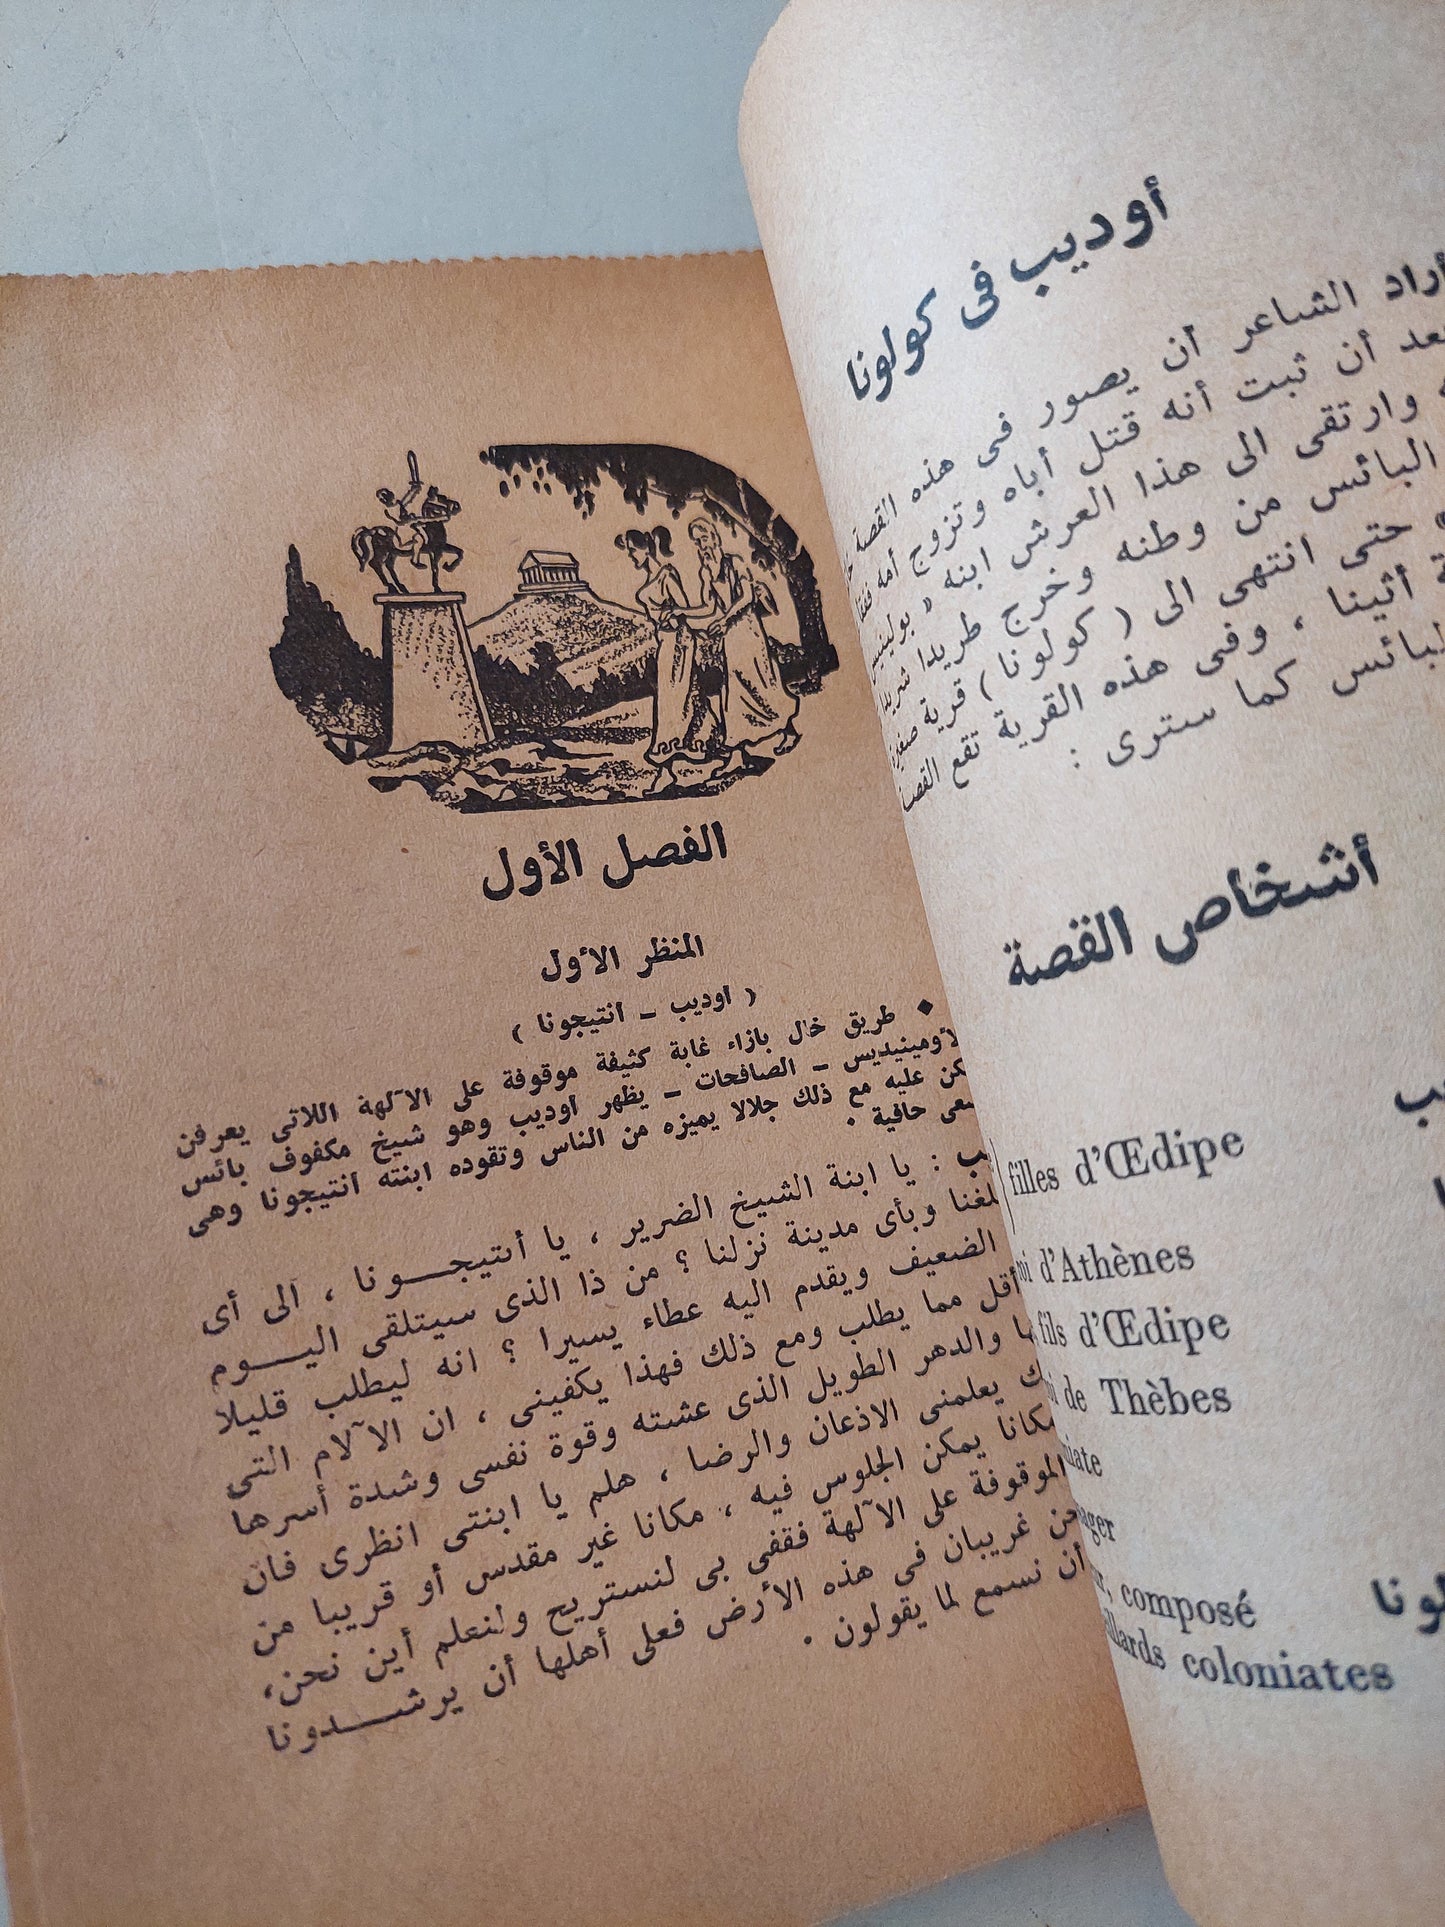 أوديب فى كولونا
أراد الشاعر أن يصور فى هذه القصة
بعد أن ثبت أنه قتل أباه وتزوج أمه
وارتقى الى هذا العرش ابنه « بولينيس
البائس من وطنه وخرج طريدا شريدا
حتى انتهى الى ( كولونا ) قرية صغيرة
أثينا ، وفى هذه القرية تقع القصة
كما سترى :
أشخاص القصة
filles d'Œdipe
d'Athènes
fils d'Œdipe
de Thèbes
composé
coloniates
الفصل الأول
المنظر الأول
( أوديب – أنتيجونا )
◆ طريق خال بازاء غابة كثيفة موقوفة على الآلهة اللاتى يعرفن
– الصافحات – يظهر أوديب وهو شيخ مكفوف بائس
عليه مع ذلك جلالا يميزه من الناس وتقوده ابنته أنتيجونا وهى
حافية .
: يا ابنة الشيخ الضرير ، يا أنتيجونا ، الى أى
وبأى مدينة نزلنا ؟ من ذا الذى سيتلقى اليوم
الضعيف ويقدم اليه عطاء يسيرا ؟ انه ليطلب قليلا
أقل مما يطلب ومع ذلك فهذا يكفينى ، ان الآلام التى
والدهر الطويل الذى عشته وقوة نفسى وشدة أسرها
يعلمنى الاذعان والرضا ، هلم يا ابنتى انظرى فان
مكانا يمكن الجلوس فيه ، مكانا غير مقدس أو قريبا من
الموقوفة على الآلهة فقفى بى لنستريح ولنعلم أين نحن،
غريبان فى هذه الأرض فعلى أهلها أن يرشدونا
أن نسمع لما يقولون .